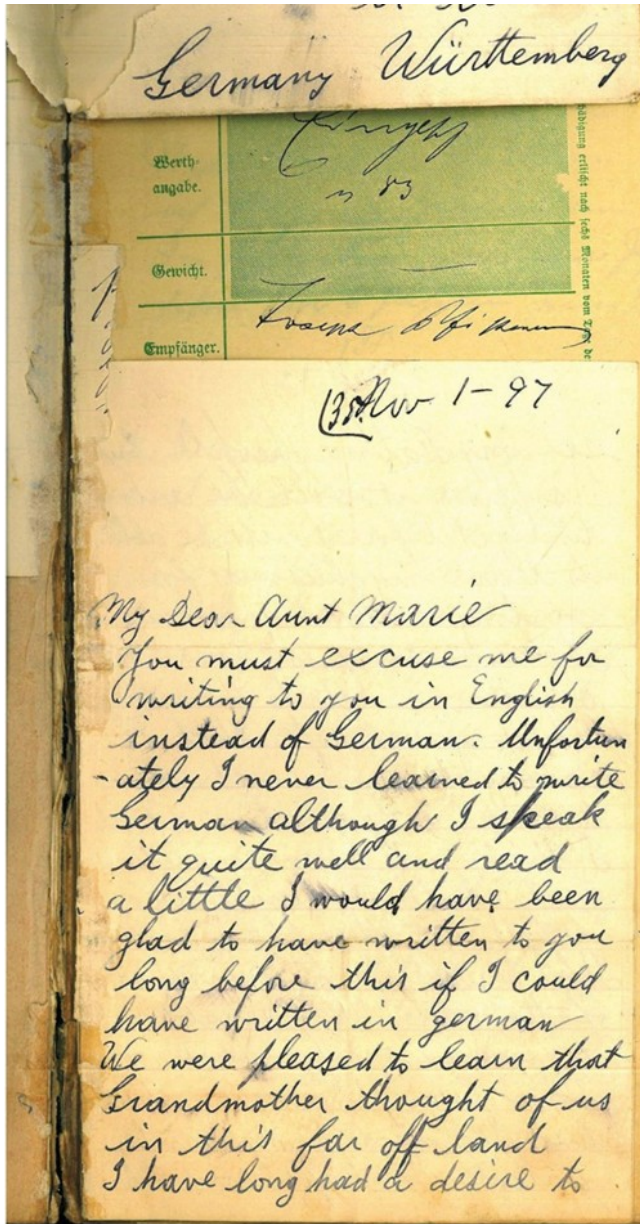 Germany Württemberg
Werth-
angabe.
Gewicht.
Empfänger.
hädigung erlischt nach sechs Monaten vom Tage de
Nov 1-97
My Dear Aunt Marie
You must excuse me for
writing to you in English
instead of German. Unfortun
-ately I never learned to write
German although I speak
it quite well and read
a little I would have been
glad to have written to you
long before this if I could
have written in german
We were pleased to learn that
Grandmother thought of us
in this far off land
I have long had a desire to